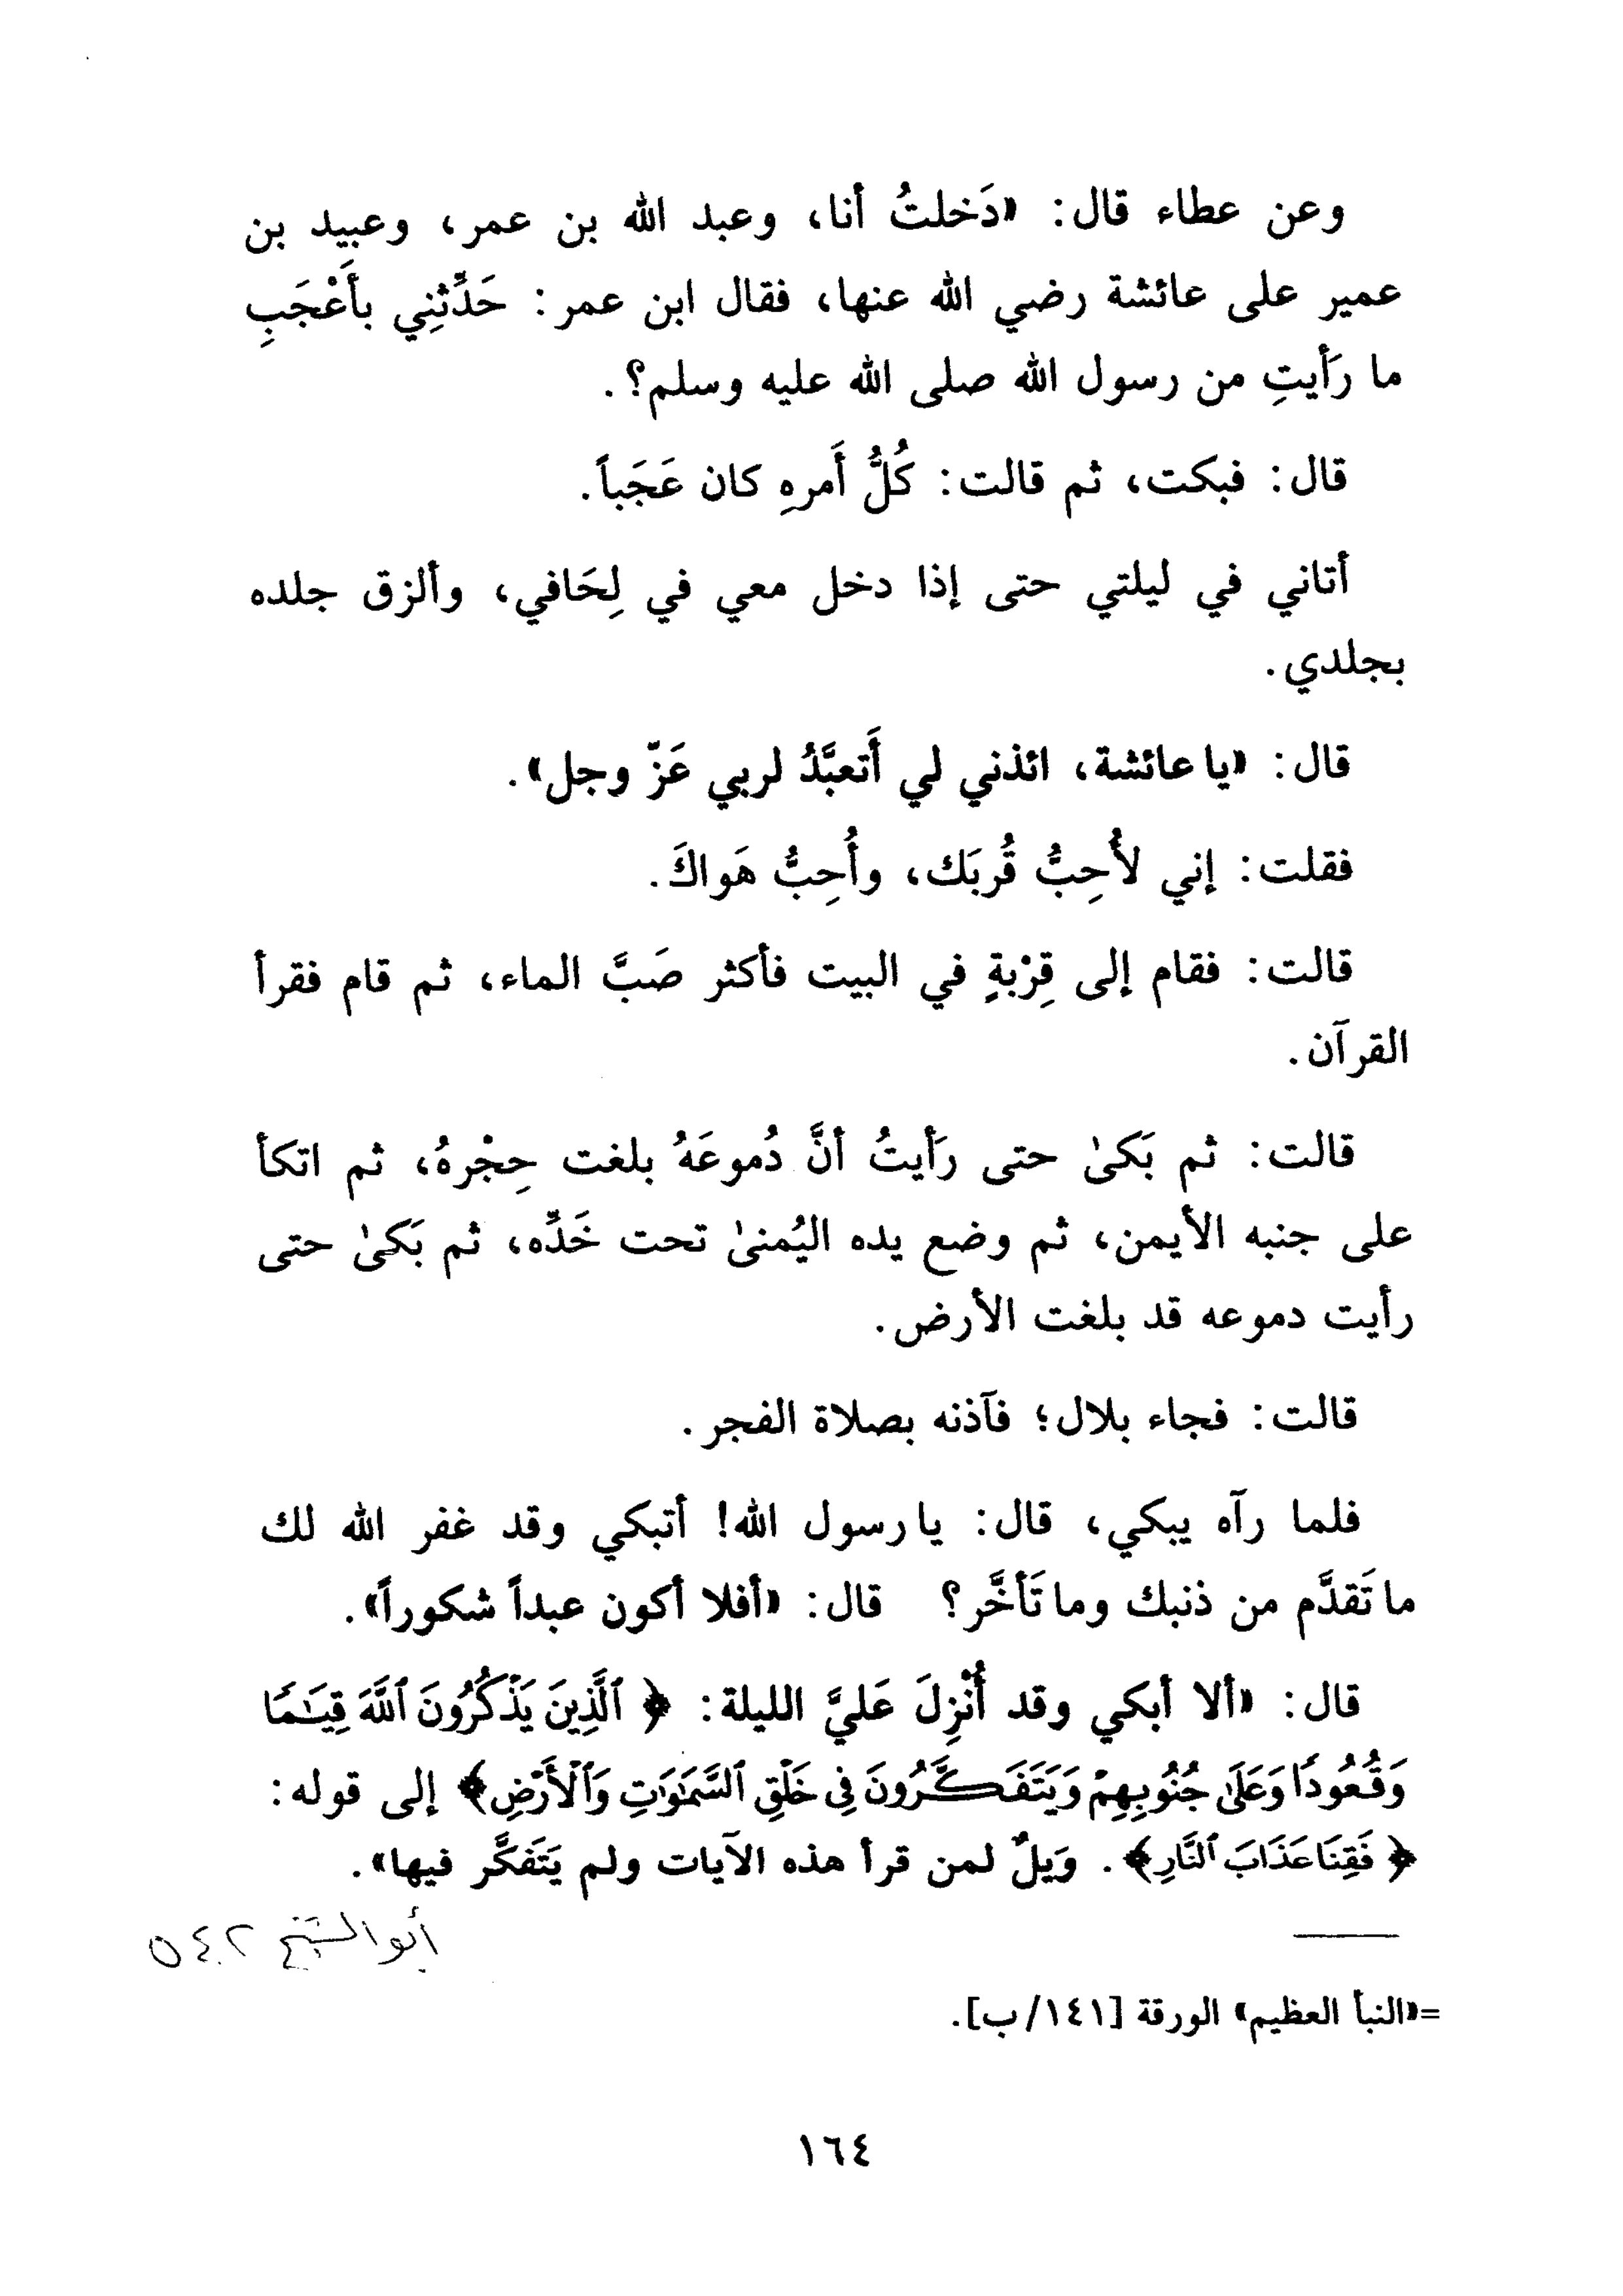 وعن عطاء قال: «دَخلتُ أنا، وعبد الله بن عمر، وعبيد بن
عمير على عائشة رضي الله عنها، فقال ابن عمر: حَدِّثنِي بأَعْجَبِ
ما رَأيتِ من رسول الله صلى الله عليه وسلم؟.
قال: فبكت، ثم قالت: كُلُّ أَمرهِ كان عَجَباً.
أتاني في ليلتي حتى إذا دخل معي في لِحَافي، وألزق جلده
بجلدي.
قال: «يا عائشة، ائذني لي أَتعبَّدُ لربي عَزّ وجل».
فقلت: إني لأُحِبُّ قُربَك، وأُحِبُّ هَواكَ.
قالت: فقام إلى قِرْبةٍ في البيت فأكثر صَبَّ الماء، ثم قام فقرأ
القرآن.
قالت: ثم بَكىٰ حتى رَأيتُ أنَّ دُموعَهُ بلغت حِجْرهُ، ثم اتكأ
على جنبه الأيمن، ثم وضع يده اليُمنىٰ تحت خَدِّه، ثم بَكىٰ حتى
رأيت دموعه قد بلغت الأرض.
قالت: فجاء بلال؛ فآذنه بصلاة الفجر.
فلما رآه يبكي، قال: يا رسول الله! أتبكي وقد غفر الله لك
ما تَقدَّم من ذنبك وما تَأخَّر؟ قال: «أفلا أكون عبداً شكوراً».
قال: «ألا أبكي وقد أُنْزِلَ عَليَّ الليلة: ﴿ ٱلَّذِينَ يَذْكُرُونَ ٱللَّهَ قِيَـٰمًا
وَقُعُودًا وَعَلَىٰ جُنُوبِهِمْ وَيَتَفَكَّرُونَ فِى خَلْقِ ٱلسَّمَـٰوَٰتِ وَٱلْأَرْضِ﴾ إلى قوله:
﴿ فَقِنَا عَذَابَ ٱلنَّارِ﴾. وَيلٌ لمن قرأ هذه الآيات ولم يَتَفكَّر فيها».
أبو الشيخ ٥٤٢
=«النبأ العظيم» الورقة [١٤١/ ب].
١٦٤